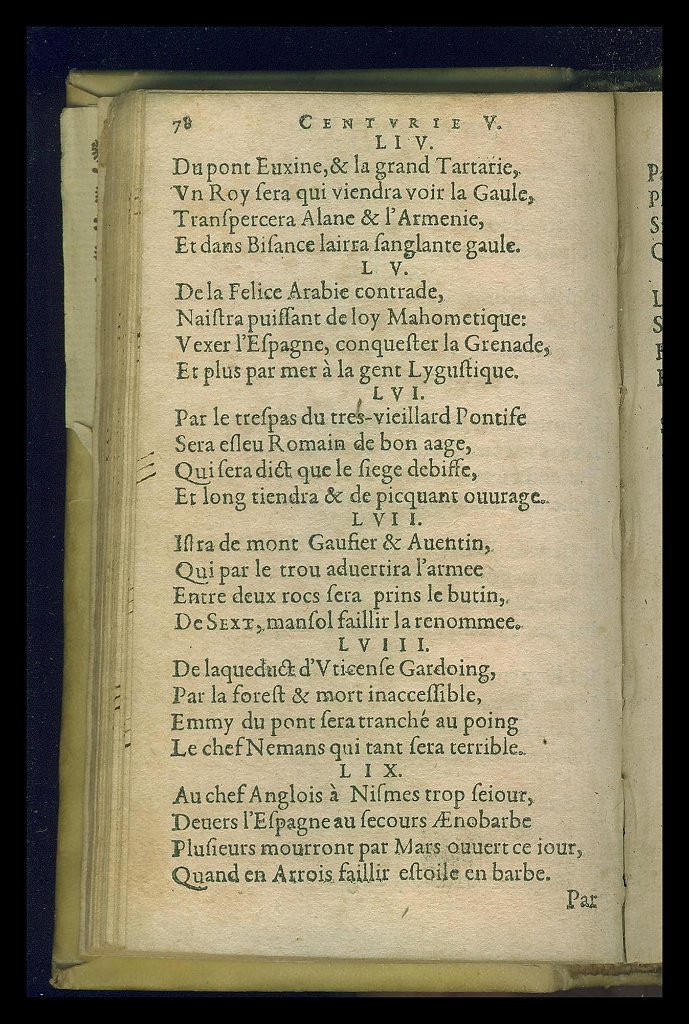 78 CENTVRIE V.
LIV.
Du pont Euxine, & la grand Tartarie,
Vn Roy ſera qui viendra voir la Gaule,
Tranſpercera Alane & l'Armenie,
Et dans Biſance lairra ſanglante gaule.
LV.
De la Felice Arabie contrade,
Naiſtra puiſſant de loy Mahometique:
Vexer l'Eſpagne, conqueſter la Grenade,
Et plus par mer à la gent Lyguſtique.
LVI.
Par le treſpas du tres-vieillard Pontife
Sera eſleu Romain de bon aage,
Qui ſera dict que le ſiege debiffe,
Et long tiendra & de picquant ouurage.
LVII.
Iſtra de mont Gaufier & Auentin,
Qui par le trou aduertira l'armee
Entre deux rocs ſera prins le butin,
De SEXT, manſol faillir la renommee.
LVIII.
De laqueduct d'Vticenſe Gardoing,
Par la foreſt & mort inacceſſible,
Emmy du pont ſera tranché au poing
Le chef Nemans qui tant ſera terrible.
LIX.
Au chef Anglois à Niſmes trop ſeiour,
Deuers l'Eſpagne au ſecours Ænobarbe
Pluſieurs mourront par Mars ouuert ce iour,
Quand en Arrois faillir eſtoile en barbe.
Par